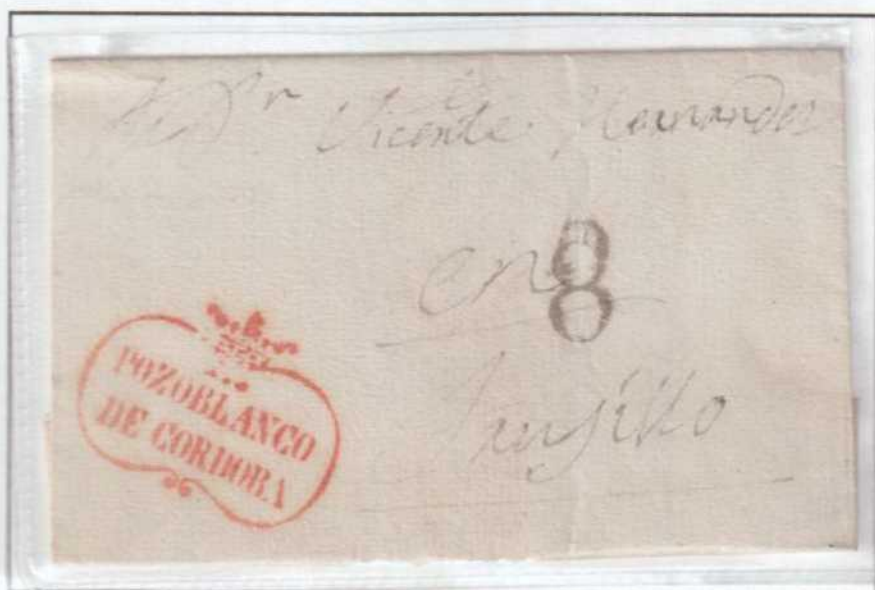 Dr Vicente Hernandez
en
8
Trujillo
POZOBLANCO
DE CORDOBA